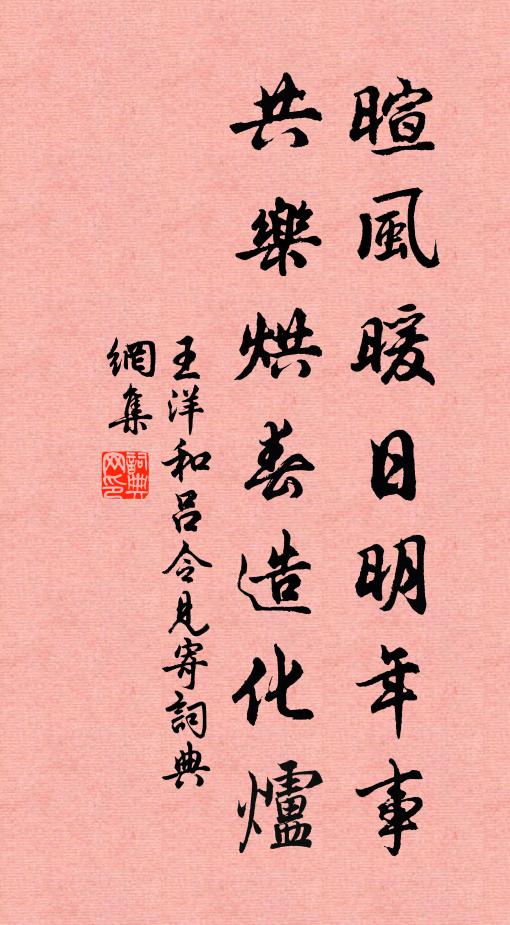 暄風暖日明年事
共樂烘春造化爐
王洋和呂令見寄詞典
網集
詞典网印